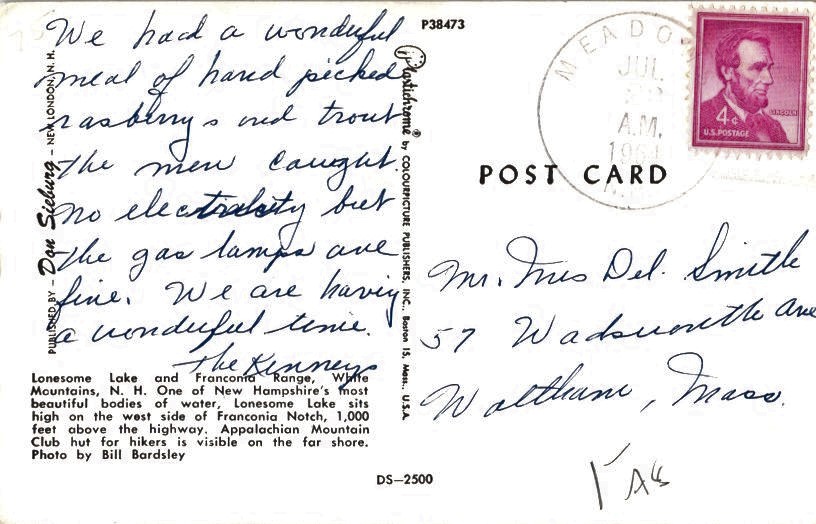 We had a wonderful
meal of hand picked
rasberrys and trout
the men caught.
No electricity but
the gas lamps are
fine. We are having
a wonderful time.
the Kenneys
PUBLISHED BY - Don Sieburg - NEW LONDON, N. H.
Lonesome Lake and Franconia Range, White
Mountains, N. H. One of New Hampshire's most
beautiful bodies of water, Lonesome Lake sits
high on the west side of Franconia Notch, 1,000
feet above the highway. Appalachian Mountain
Club hut for hikers is visible on the far shore.
Photo by Bill Bardsley
P38473
Plastichrome® by COLOURPICTURE PUBLISHERS, INC., Boston 15, Mass., U.S.A.
DS—2500
JUL
A.M.
LINCOLN
4¢
U.S. POSTAGE
POST CARD
Mr. Mrs Del. Smith
57 Wadsworth Ave
Waltham, Mass.